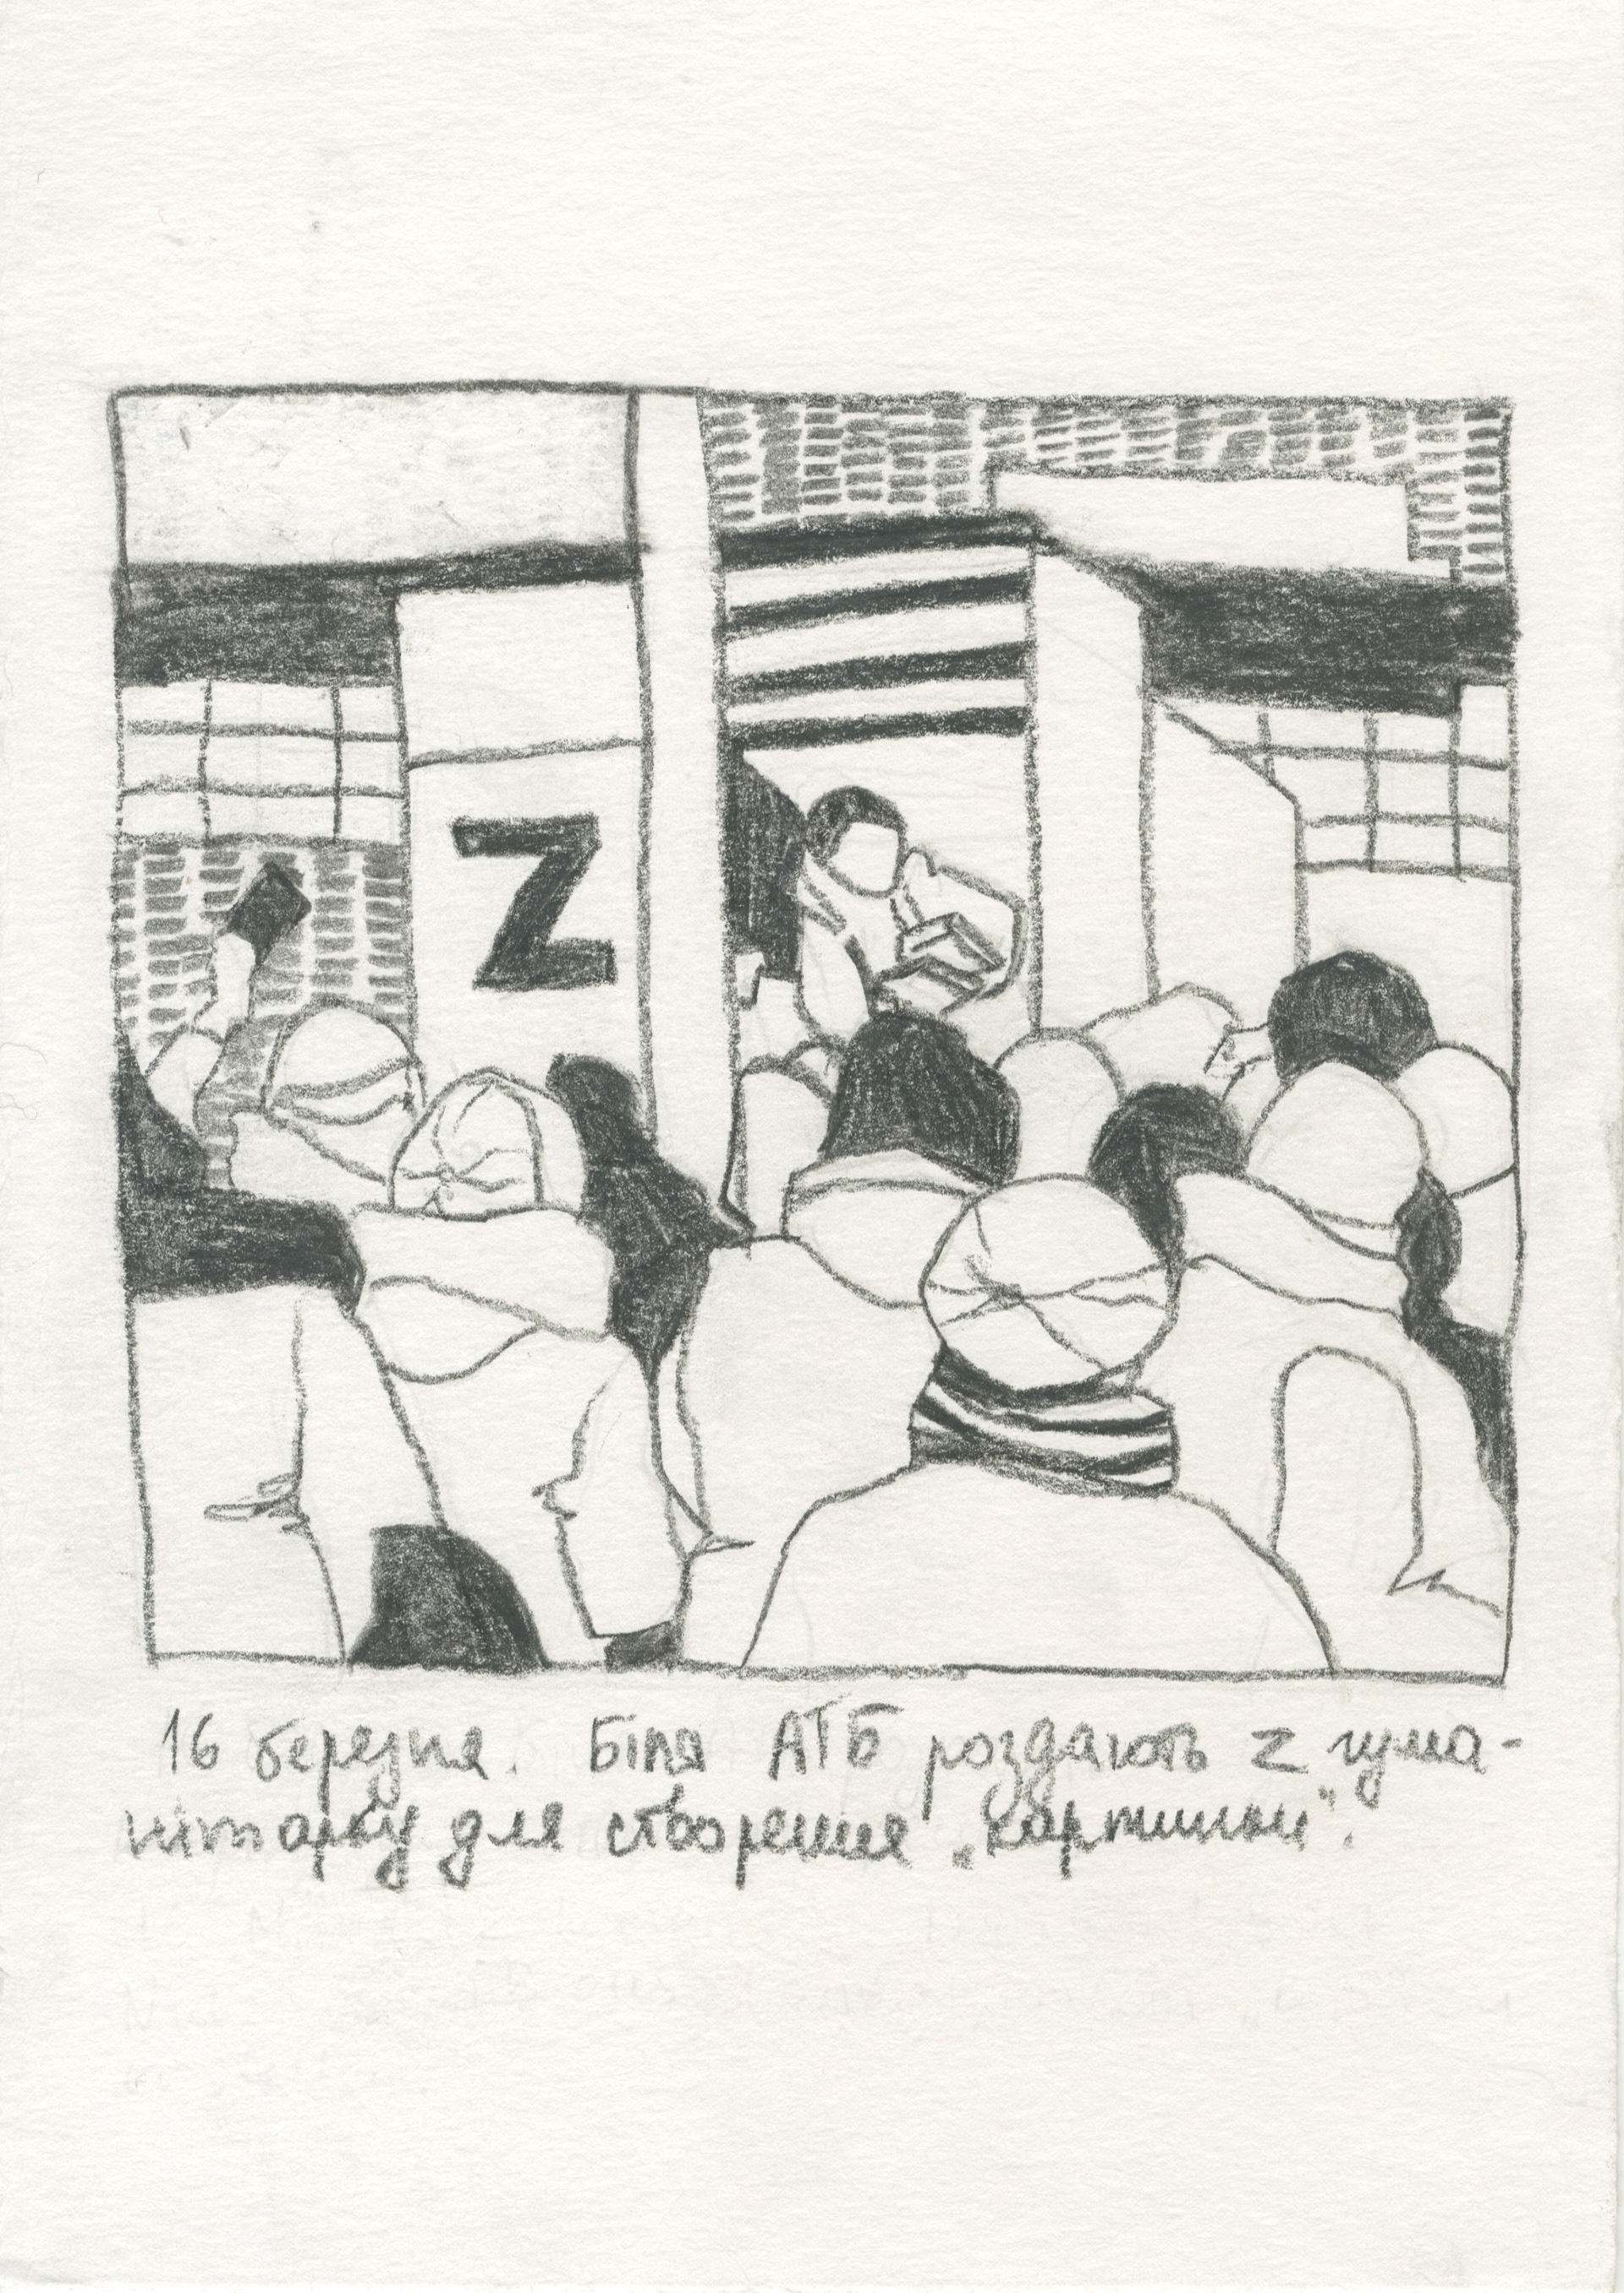 Z
16 березня. Біля АТБ роздають z гума-
нітарку для створення „картинки".